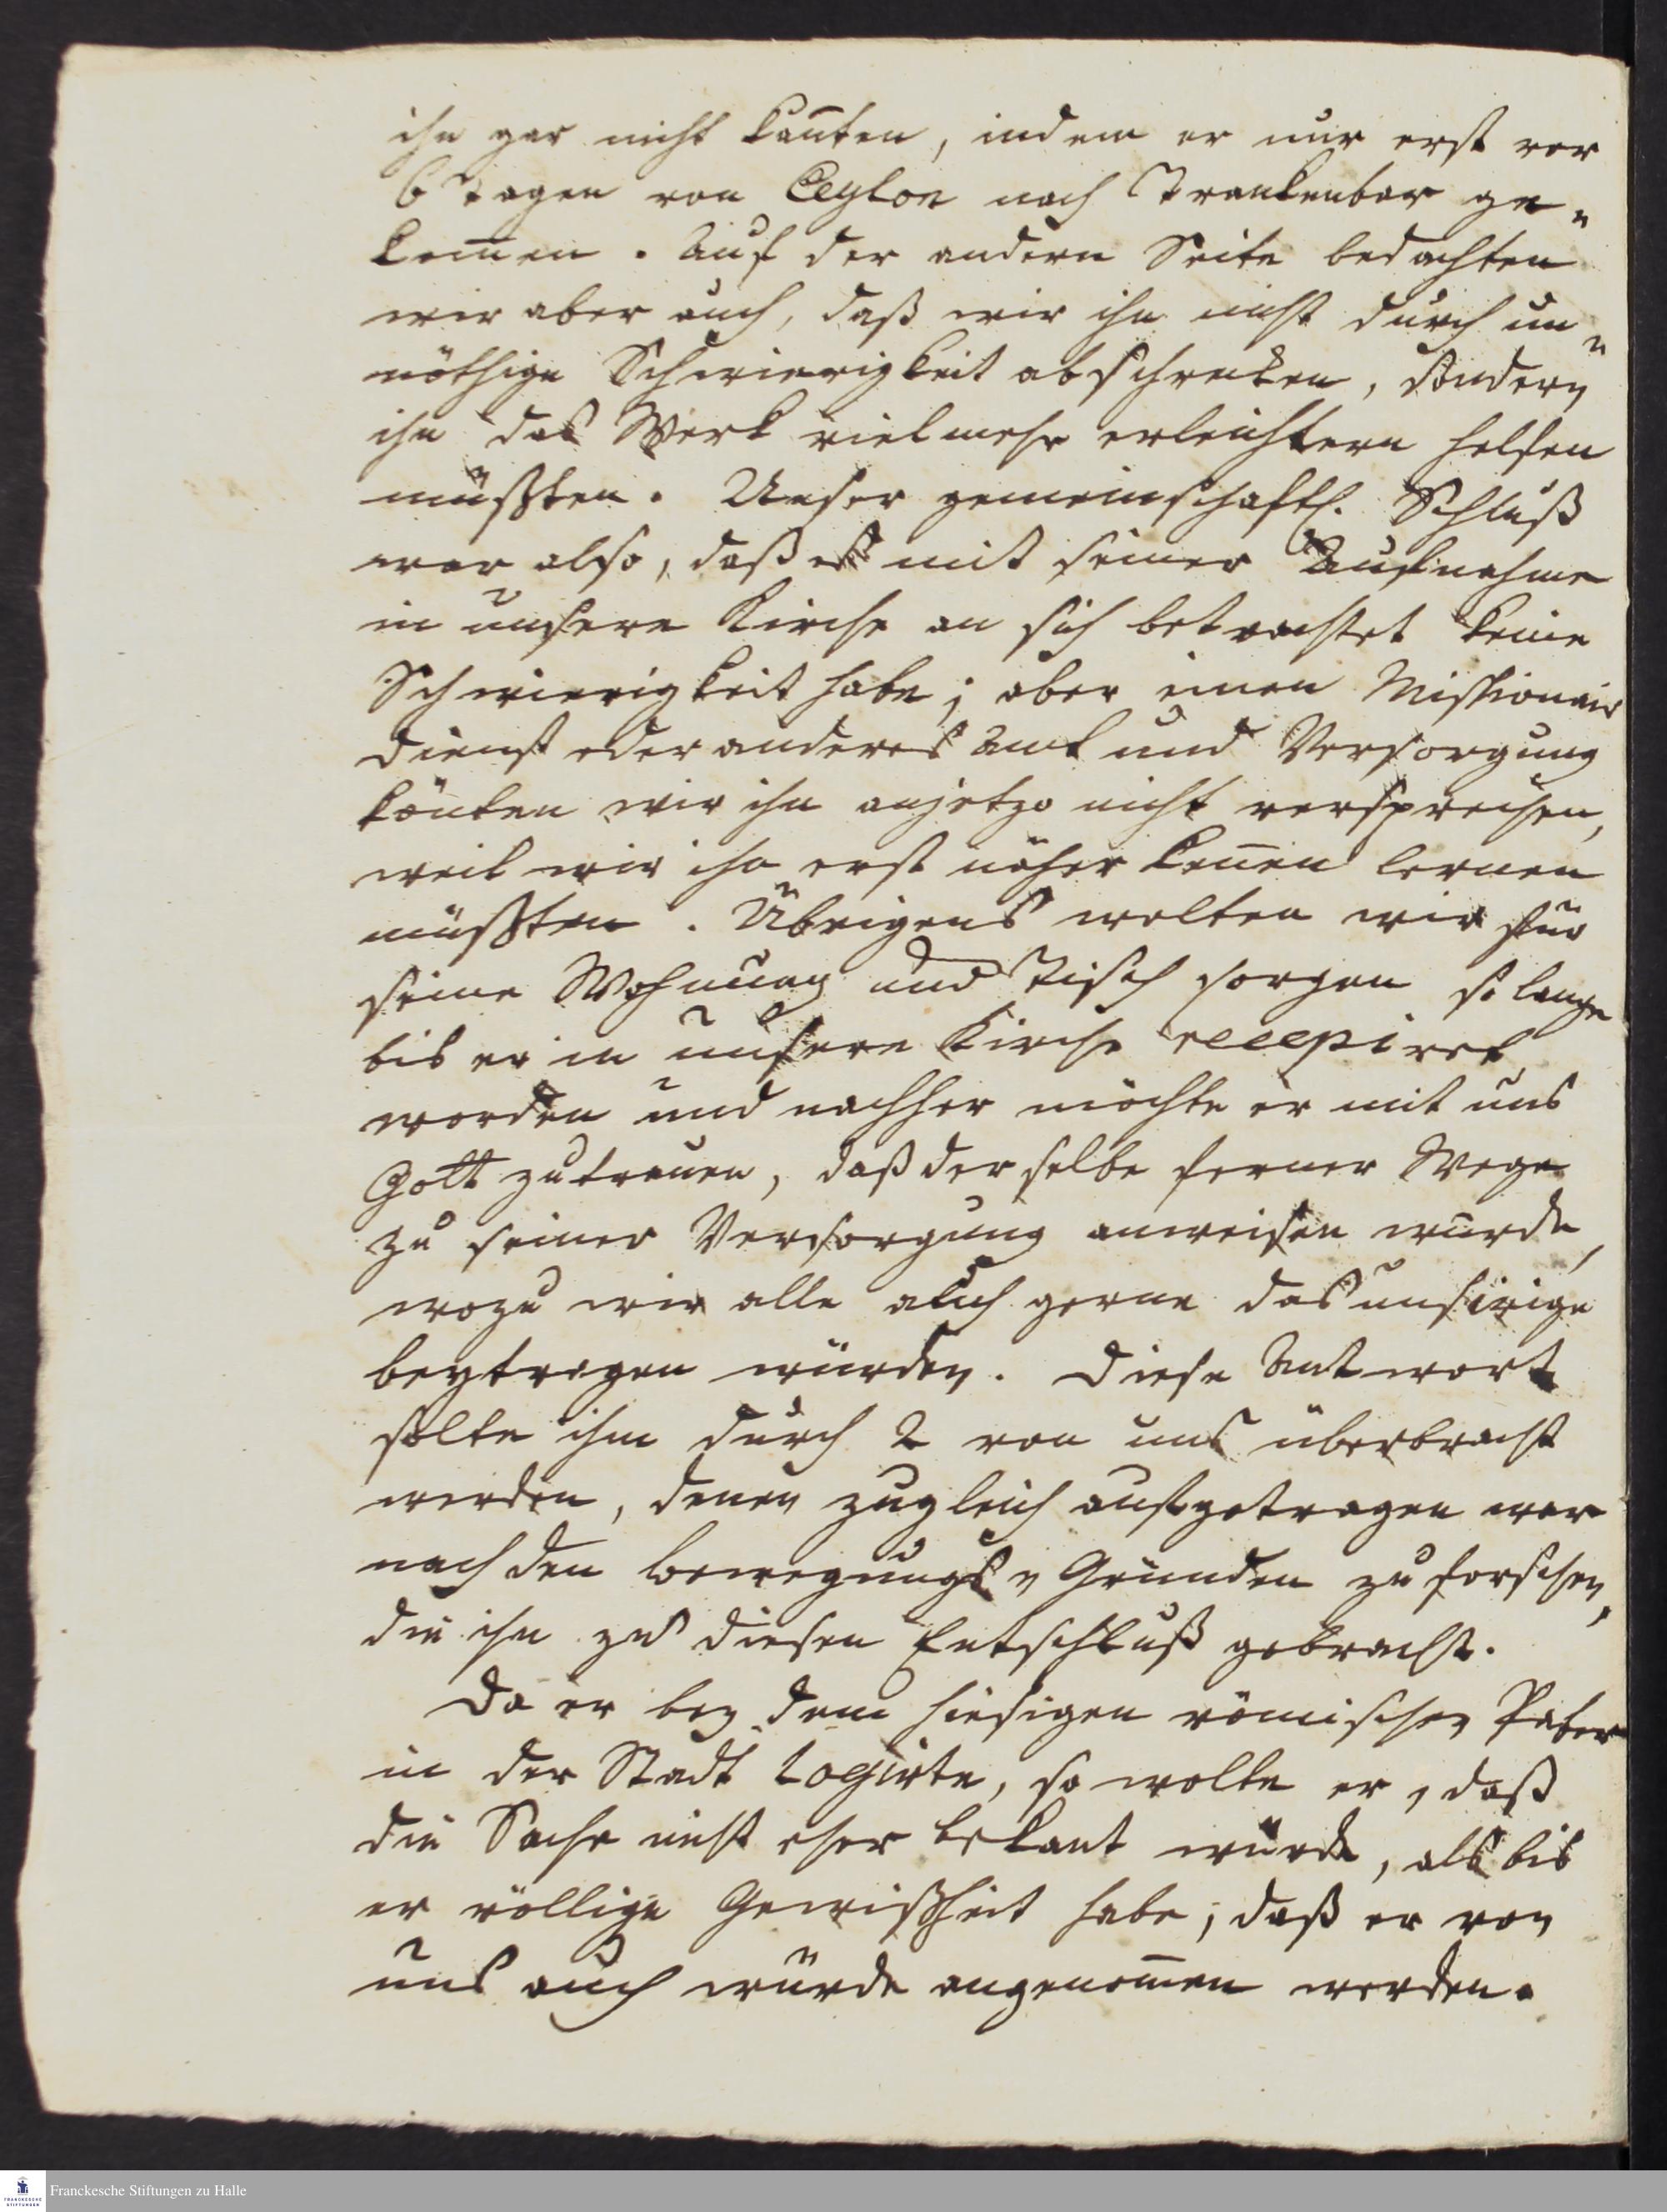 ihn gar nicht kan̄ten, indem er nur erst vor
6 Tagen von Ceylon nach Trankenbar ge-
kom̄en. Auf der andern Seite bedachten
wir aber auch, daß wir ihn nicht durch un-
nöthige Schwierigkeit abschreken, sondern
ihn das Werk vielmehr erleichtern helfen
müßten. Unser gemeinschaftl. Schluß
war also, daß es mit seiner Aufnahme
in unsere Kirche an sich betrachtet keine
Schwierigkeit habe; aber einen Missionair
dienst oder anderes Amt und Versorgung
kön̄ten wir ihn anjetzo nicht versprechen,
weil wir ihn erst näher ken̄en lernen
müßten. Übrigens wolten wir für
seine Wohnung und Tisch sorgen so lange
bis er in unsere Kirche recepiret
worden und nachher möchte er mit uns
Gott zutrauen, daß derselbe ferner Wege
zu seiner Versorgung anweisen würde,
wozu wir alle auch gerne das unsrige
beytragen würden. Diese Antwort
solte ihm durch 2 von uns überbracht
werden, denen zugleich aufgetragen war
nach den bewegungs-Gründen zu forschen,
die ihn zu diesen Entschluß gebracht.
Da er bey dem hiesigen römischen Pater
in der Stadt logirte, so wolte er, daß
die Sache nicht eher bekant würde, als bis
er völlige Gewißheit habe; daß er von
uns auch würde angenom̄en werden.
Franckesche Stiftungen zu Halle
FRANCKESCHE
STIFTUNGEN